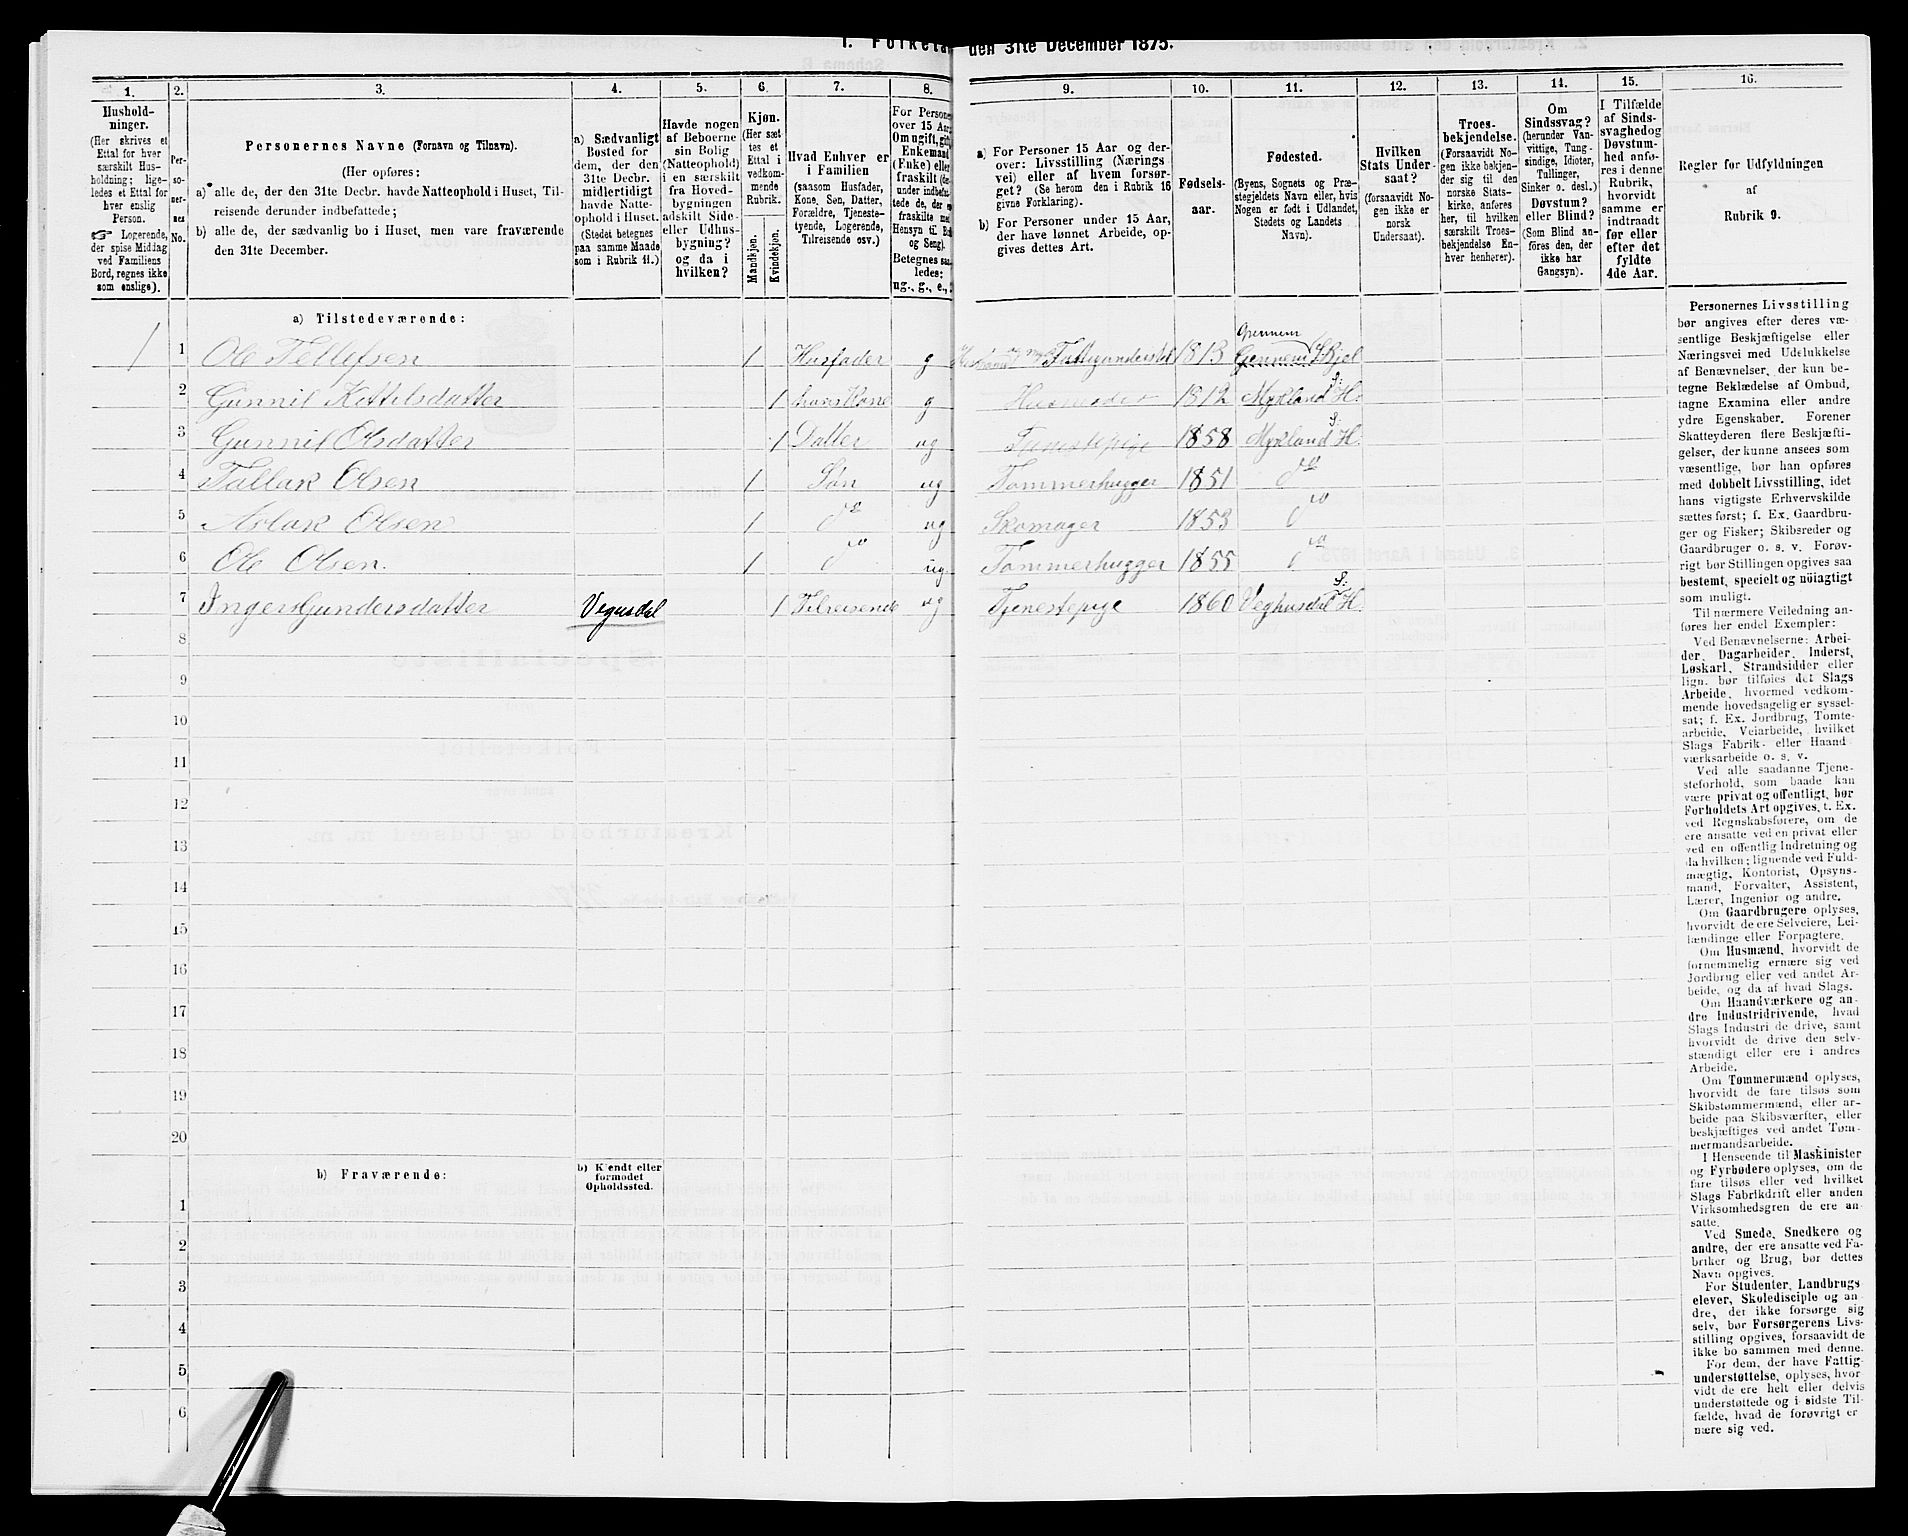 1. Folketæ
den 31te December 1875.
1. 2. 3. 4. 5. 6. 7. 8. 9. 10. 11. 12. 13. 14. 15. 16.
Hushold-
ninger.
(Her skrives et
Ettal for hver
særskilt Hus-
holdning; lige-
ledes et Ettal for
hver enslig
Person.
☞ Logerende,
der spise Middag
ved Familiens
Bord, regnes ikke
som enslige).
Per-
so-
ner-
nes
No.
Personernes Navne (Fornavn og Tilnavn).
(Her opføres:
a) alle de, der den 31te Decbr. havde Natteophold i Huset, Til-
reisende derunder indbefattede;
b) alle de, der sædvanlig bo i Huset, men vare fraværende
den 31te December.
a) Sædvanligt
Bosted for
dem, der den
31te Decbr.
midlertidigt
havde Natte-
ophold i Huset.
(Stedet betegnes
paa samme Maade
som i Rubrik 11.)
Havde nogen
af Beboerne
sin Bolig
(Natteophold)
i en særskilt
fra Hoved-
bygningen
adskilt Side-
eller Udhus-
bygning?
og da i
hvilken?
Kjøn.
(Her sæt-
tes et
Ettal i
vedkom-
mende
Rubrik.
Mandkjøn.
Kvindekjøn.
Hvad Enhver er
i Familien
(saasom Husfader,
Kone, Søn, Datter,
Forældre, Tjeneste-
tyende, Logerende,
Tilreisende osv.)
For Persone
over 15 Aar,
Om ugift, gift,
Enkemand
(Enke) eller
fraskilt
under indbefat-
tede de, der
fraskilte med
Hensyn til Bo
og Seng).
Betegnes saa-
ledes:
ug., g., e.,
a) For Personer 15 Aar og der-
over: Livsstilling (Nærings
vei) eller af hvem forsør-
get? (Se herom den i Rubrik 16
givne Forklaring).
b) For Personer under 15 Aar,
der have lønnet Arbeide, op-
gives dettes Art.
Fødsels-
aar.
Fødested.
(Byens, Sognets og Præ-
stegjeldets Navn eller, hvis
Nogen er født i Udlandet,
Stedets og Landets
Navn).
Hvilken
Stats Under-
saat?
(forsaavidt No-
gen ikke er
norsk
Undersaat).
Troes-
bekjendelse.
(Forsaavidt No-
gen ikke bekjen-
der sig til den
norske Stats-
kirke, anføres
her, til hvilken
særskilt Troes-
bekjendelse En-
hver henhører).
Om
Sindssvag?
(herunder Van-
vittige, Tung-
sindige, Idioter,
Tullinger,
Sinker o. desl.)
Døvstum?
eller Blind?
(Som Blind an-
føres den, der
ikke har
Gangsyn).
I Tilfælde
af Sinds-
svaghed og
Døvstum-
hed anfø-
res i denne
Rubrik,
hvorvidt
samme er
indtraadt
før eller
efter det
fyldte
4de Aar.
Regler for Udfyldningen
af
Rubrik 9.
a) Tilstedeværende:
1 1 Ole Tellefsen 1 Husfader g Fattigunderstøl 1813 Gjennem
2 Gunnil Kittilsdatter 1 hans Kone g Husmoder 1812 Mykland S. H.
3 Gunnil Olsdatter 1 Datter ug Tjenestepige 1858 Mykland S. H.
4 Tallak Olsen 1 Søn ug Tømmerhugger 1851 do
5 Aslak Olsen 1 do ug Skomager 1853 do
6 Ole Olsen. 1 do ug. Tømmerhugger 1855 do
7 Inger Gundersdatter Vegusdal 1 Tilreisende ug Tjenestepige 1860 Veghusdal S: H.
8
9
10
11
12
13
14
15
16
17
18
19
20
b) Fraværende:
b) Kjendt eller
formodet
Opholdssted.
1
2
3
4
5
6
Personernes Livsstilling
bør angives efter deres væ-
sentlige Beskjæftigelse eller
Næringsvei med Udelukkelse
af Benævnelser, der kun be-
tegne Beklædelse af Ombud,
tagne Examina eller andre
ydre Egenskaber. Forener
Skatteyderen flere Beskjæfti-
gelser, der kunne ansees som
væsentlige, bør han opføres
med dobbelt Livsstilling, idet
hans vigtigste Erhvervskilde
sættes først; f. Ex. Gaardbru-
ger og Fisker; Skibsreder og
Gaardbruger o. s. v. Forøv-
rigt bør Stillingen opgives saa
bestemt, specielt og nöiagtigt
som muligt.
Til nærmere Veiledning an-
føres her endel Exempler:
Ved Benævnelserne: Arbei-
der, Dagarbeider, Inderst,
Løskarl, Strandsidder eller
lign. bør tilføies det Slags
Arbeide, hvormed vedkom-
mende hovedsagelig er syssel-
sat; f. Ex. Jordbrug, Tomte-
arbeide, Veiarbeide, hvilket
Slags Fabrik- eller Haand
værksarbeide o. s. v.
Ved alle saadanne Tjene-
steforhold, som baade kan
være privat og offentligt, bør
Forholdets Art opgives, t. Ex.
ved Regnskabsførere, om de
ere ansatte ved en privat eller
ved en offentlig Indretning og
da hvilken; lignende ved Fuld-
mægtig, Kontorist, Opsyns-
mand, Forvalter, Assistent,
Lærer, Ingeniør og andre.
Om Gaardbrugere oplyses,
hvorvidt de ere Selveiere, Lei-
lændinge eller Forpagtere.
Om Husmænd, hvorvidt de
fornemmelig ernære sig ved
Jordbrug eller ved andet Ar-
beide, og da af hvad Slags.
Om Haandværkere og an-
dre Industridrivende, hvad
Slags Industri de drive, samt
hvorvidt de drive den selv-
stændigt eller ere i andres
Arbeide.
Om Tømmermænd oplyses,
hvorvidt de fare tilsøs som
Skibstømmermænd, eller ar-
beide paa Skibsværfter, eller
beskjæftiges ved andet Tøm-
mermandsarbeide.
I Henseende til Maskinister
og Fyrbødere oplyses, om de
fare tilsøs eller ved hvilket
Slags Fabrikdrift eller anden
Virksomhedsgren de ere an-
satte.
Ved Smede, Snedkere og
andre, der ere ansatte ved Fa-
briker og Brug, bør dettes
Navn opgives.
For Studenter, Landbrugs
elever, Skoledisciple og an-
dre, der ikke forsørge sig
selv, bør Forsørgerens Livs-
stilling opgives, forsaavidt de
ikke bo sammen med denne.
For dem, der have Fattig-
understøttelse, oplyses, hvor
vidt de ere helt eller delvis
understøttede og i sidste Til-
fælde, hvad de forøvrigt er
nære sig ved.